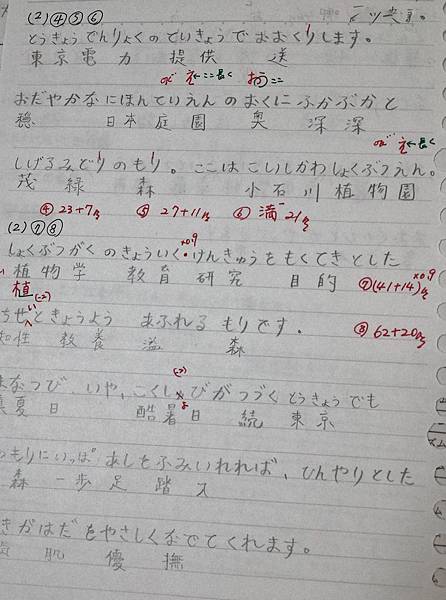 (2)④⑤⑥
とうきょうでんりょくのていきょうでおおくりします。
東京電力 提供 送
え←ここ長く
おだやかなにほんていえんのおくにふかぶかと
穏 日本庭園 奥 深深
え←長く
しげるみどりのもり。ここはこいしかわしょくぶつえん。
茂 緑 森 小石川植物園
④23+7 ⑤27+11 ⑥満 21
(2)⑦⑧
しょくぶつがくのきょういく・けんきゅうをもくてきとした
植物学 教育 研究 目的 ⑦(41+14)×0.9
植 (-2)
ちせいときょうよう あふれる もりです。 ⑧62+20
知性 教養 溢 森
まなつび、いや、こくしょびがつづくとうきょうでも
真夏日 酷暑日 続 東京
もりにいっぽあしをふみいれれば、ひんやりとした
森 一歩足 踏 入
きがはだをやさしくなでてくれます。
気 肌 優 撫